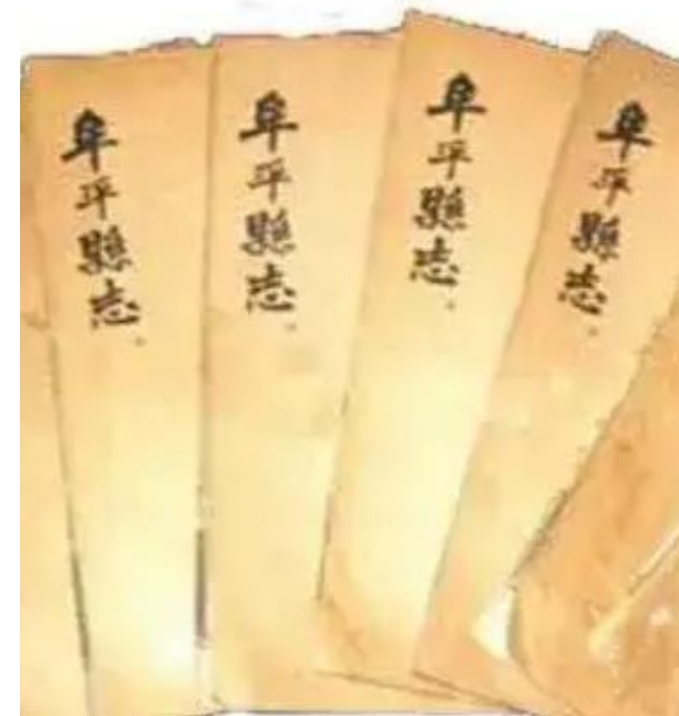 阜平縣志
阜平縣志
阜平縣志
阜平縣志